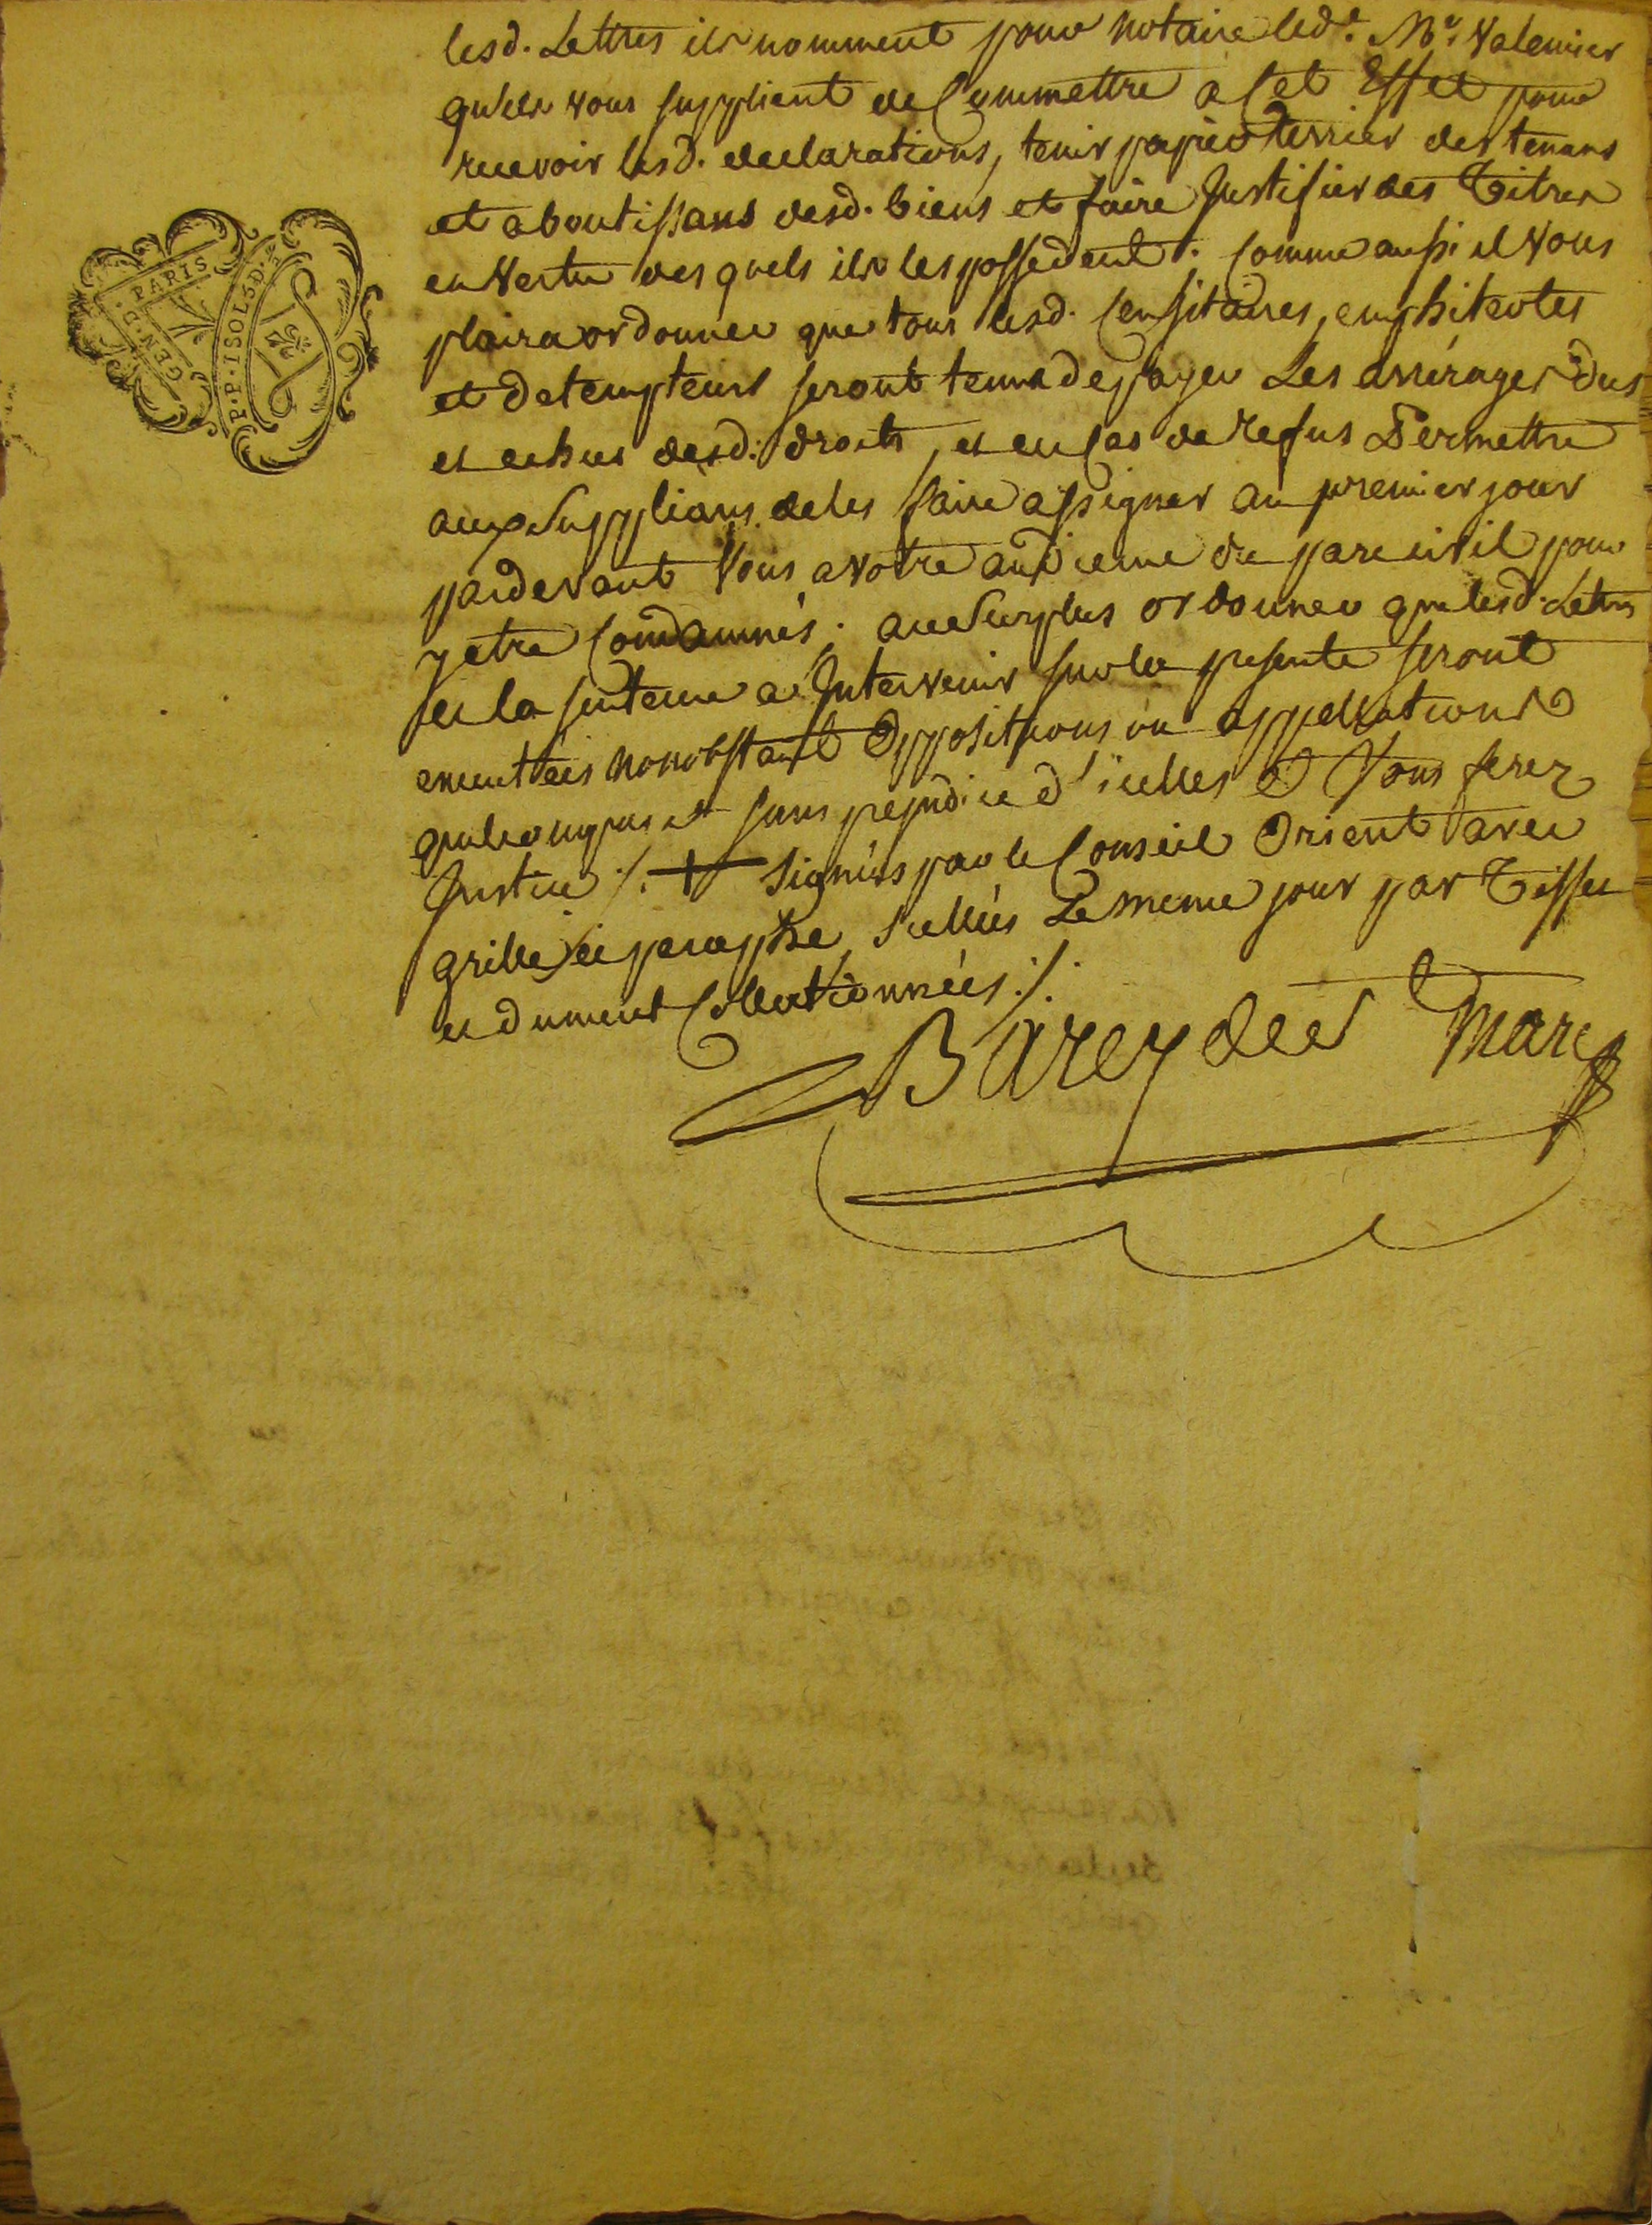 lesd. Lettres ils nomment pour Notaire led.t M.e
qu'ils vous supplient de Commettre a Cet Effet pour
recevoir lesd. declarations, tenir papier terrier des tenans
et aboutissans desd. biens et faire Justifier des Titres
en Vertu des quels ils les possedent. Comme aussi il Vous
plaira ordonner que tous lesd. Censitaires, emphiteotes
et detempteurs seront tenus de payer Les arrérages Dus
et echus desd. droits, et en Cas de Refus Permettre
aux Supplians de les faire assigner au premier jour
pardevant Vous a votre audience du parc civil pour
y etre Condamnés; au Surplus ordonner que lesd. Lettres
et la sentence a Intervenir sur la presente seront
executtées nonobstant Oppositions ou appellations
quelconques et sans prejudice d'icelles Et Vous ferez
Justice ./. Signées par le Conseil Orient avec
grille et paraphe, Scellées Le meme jour par
et dument Collationnées ./.
Barey des Marc
GEN. D. PARIS
P. P. ISOLSD.